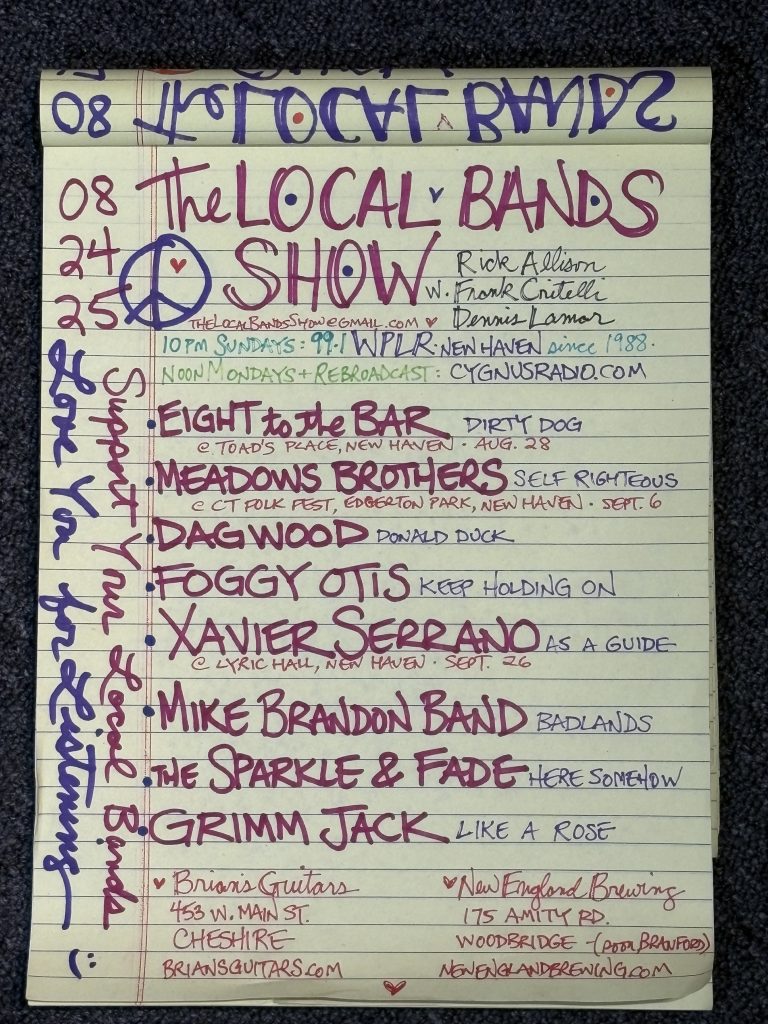 08 The LOCAL BANDS
08 The LOCAL BANDS
24 SHOW w. Rick Allison
Frank Critelli
25 THELOCALBANDSSHOW@GMAIL.COM Dennis Lamar
10PM SUNDAYS: 99.1 WPLR· NEW HAVEN since 1988·
NOON MONDAYS + REBROADCAST: CYGNUSRADIO.COM
• EIGHT to the BAR DIRTY DOG
@ TOAD'S PLACE, NEW HAVEN · AUG. 28
• MEADOWS BROTHERS SELF RIGHTEOUS
@ CT FOLK FEST, EDGERTON PARK, NEW HAVEN · SEPT. 6
• DAGWOOD DONALD DUCK
• FOGGY OTIS KEEP HOLDING ON
• XAVIER SERRANO AS A GUIDE
@ LYRIC HALL, NEW HAVEN · SEPT. 26
• MIKE BRANDON BAND BADLANDS
• THE SPARKLE & FADE HERE SOMEHOW
• GRIMM JACK LIKE A ROSE
Support Your Local Bands
Love You for Listening :)
♥ Brian's Guitars
453 W. MAIN ST.
CHESHIRE
BRIANSGUITARS.COM
♥ New England Brewing
175 AMITY RD.
WOODBRIDGE - (POOR BRANFORD)
NEWENGLANDBREWING.COM